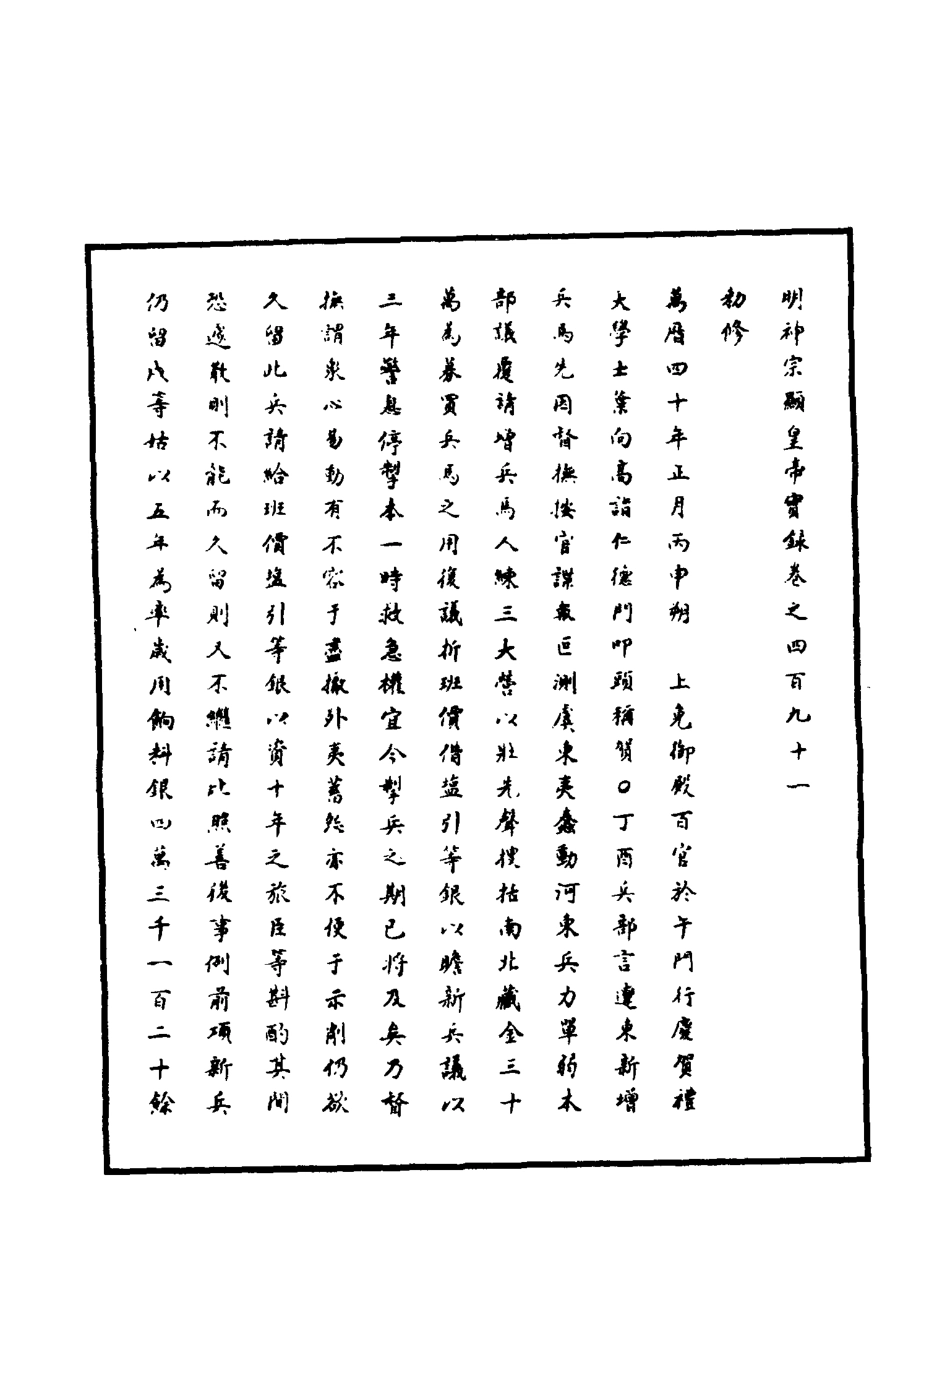 明神宗顯皇帝實錄卷之四百九十一
勑修
萬曆四十年正月丙申朔　上免御殿百官於午門行慶賀禮
大學士葉向高詣仁德門叩頭稱賀○丁酉兵部言遼東新增
兵馬先因督撫按官諜報叵測虞東夷蠢動河東兵力單弱本
部議覆請增兵馬人練三大營以壯先聲搜括南北藏金三十
萬為募買兵馬之用復議折班價借塩引等銀以贍新兵議以
三年警息停掣本一時救急權宜今掣兵之期已將及矣乃督
撫謂衆心易動有不容于盡撤外夷舊怨亦不便于示削仍欲
久留此兵請給班價塩引等銀以資十年之旅臣等斟酌其間
恐遽散則不能而久留則又不繼請比照善後事例前項新兵
仍留戍等姑以五年為率歲用餉料銀四萬三千一百二十餘